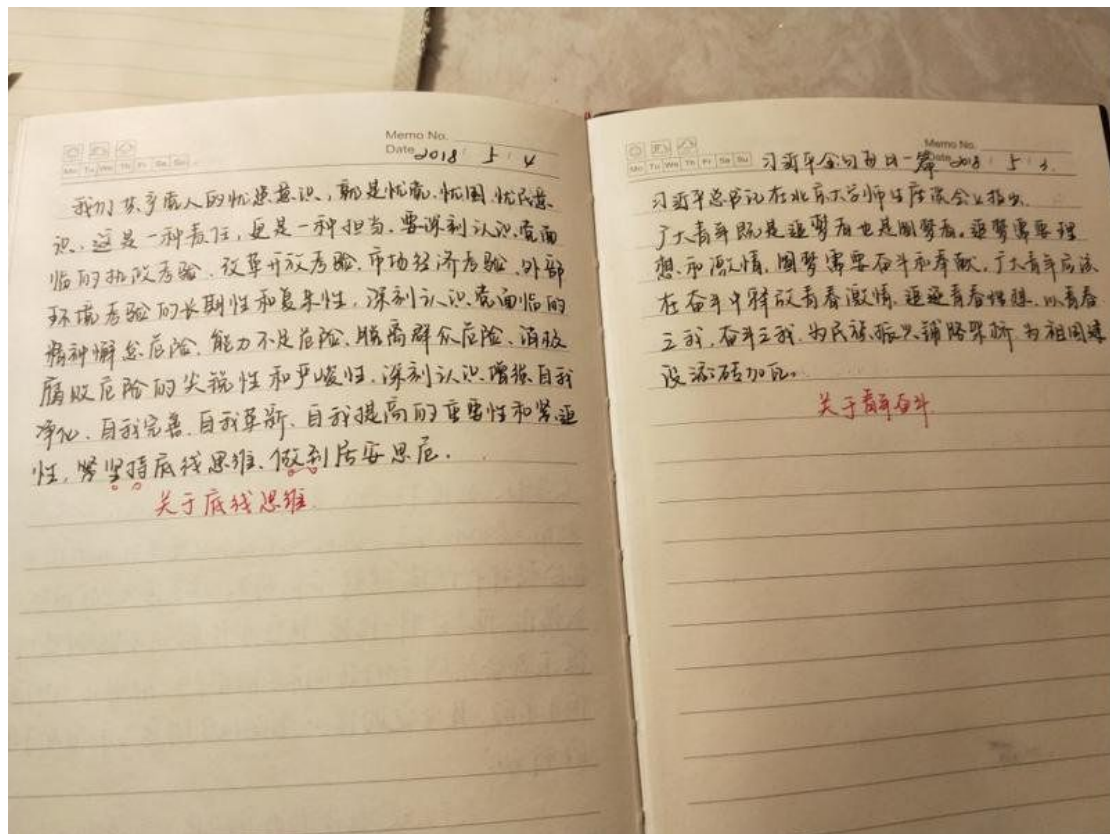 Memo No.
Date 2018 : 5 : 4
Mo Tu We Th Fr Sa Su
我们共产党人的忧患意识,就是忧党、忧国、忧民意
识,这是一种责任,更是一种担当。要深刻认识党面
临的执政考验、改革开放考验、市场经济考验、外部
环境考验的长期性和复杂性,深刻认识党面临的
精神懈怠危险、能力不足危险、脱离群众危险、消极
腐败危险的尖锐性和严峻性,深刻认识增强自我
净化、自我完善、自我革新、自我提高的重要性和紧迫
性,坚持底线思维、做到居安思危。
关于底线思维
Memo No.
Mo Tu We Th Fr Sa Su
习近平金句每日一篇 Date 2018 : 5 : 3
习近平总书记在北京大学师生座谈会上指出
广大青年既是追梦者也是圆梦者。追梦需要理
想和激情,圆梦需要奋斗和奉献。广大青年应该
在奋斗中释放青春激情、追逐青春理想,以青春
之我、奋斗之我,为民族振兴铺路架桥,为祖国建
设添砖加瓦。
关于青年奋斗